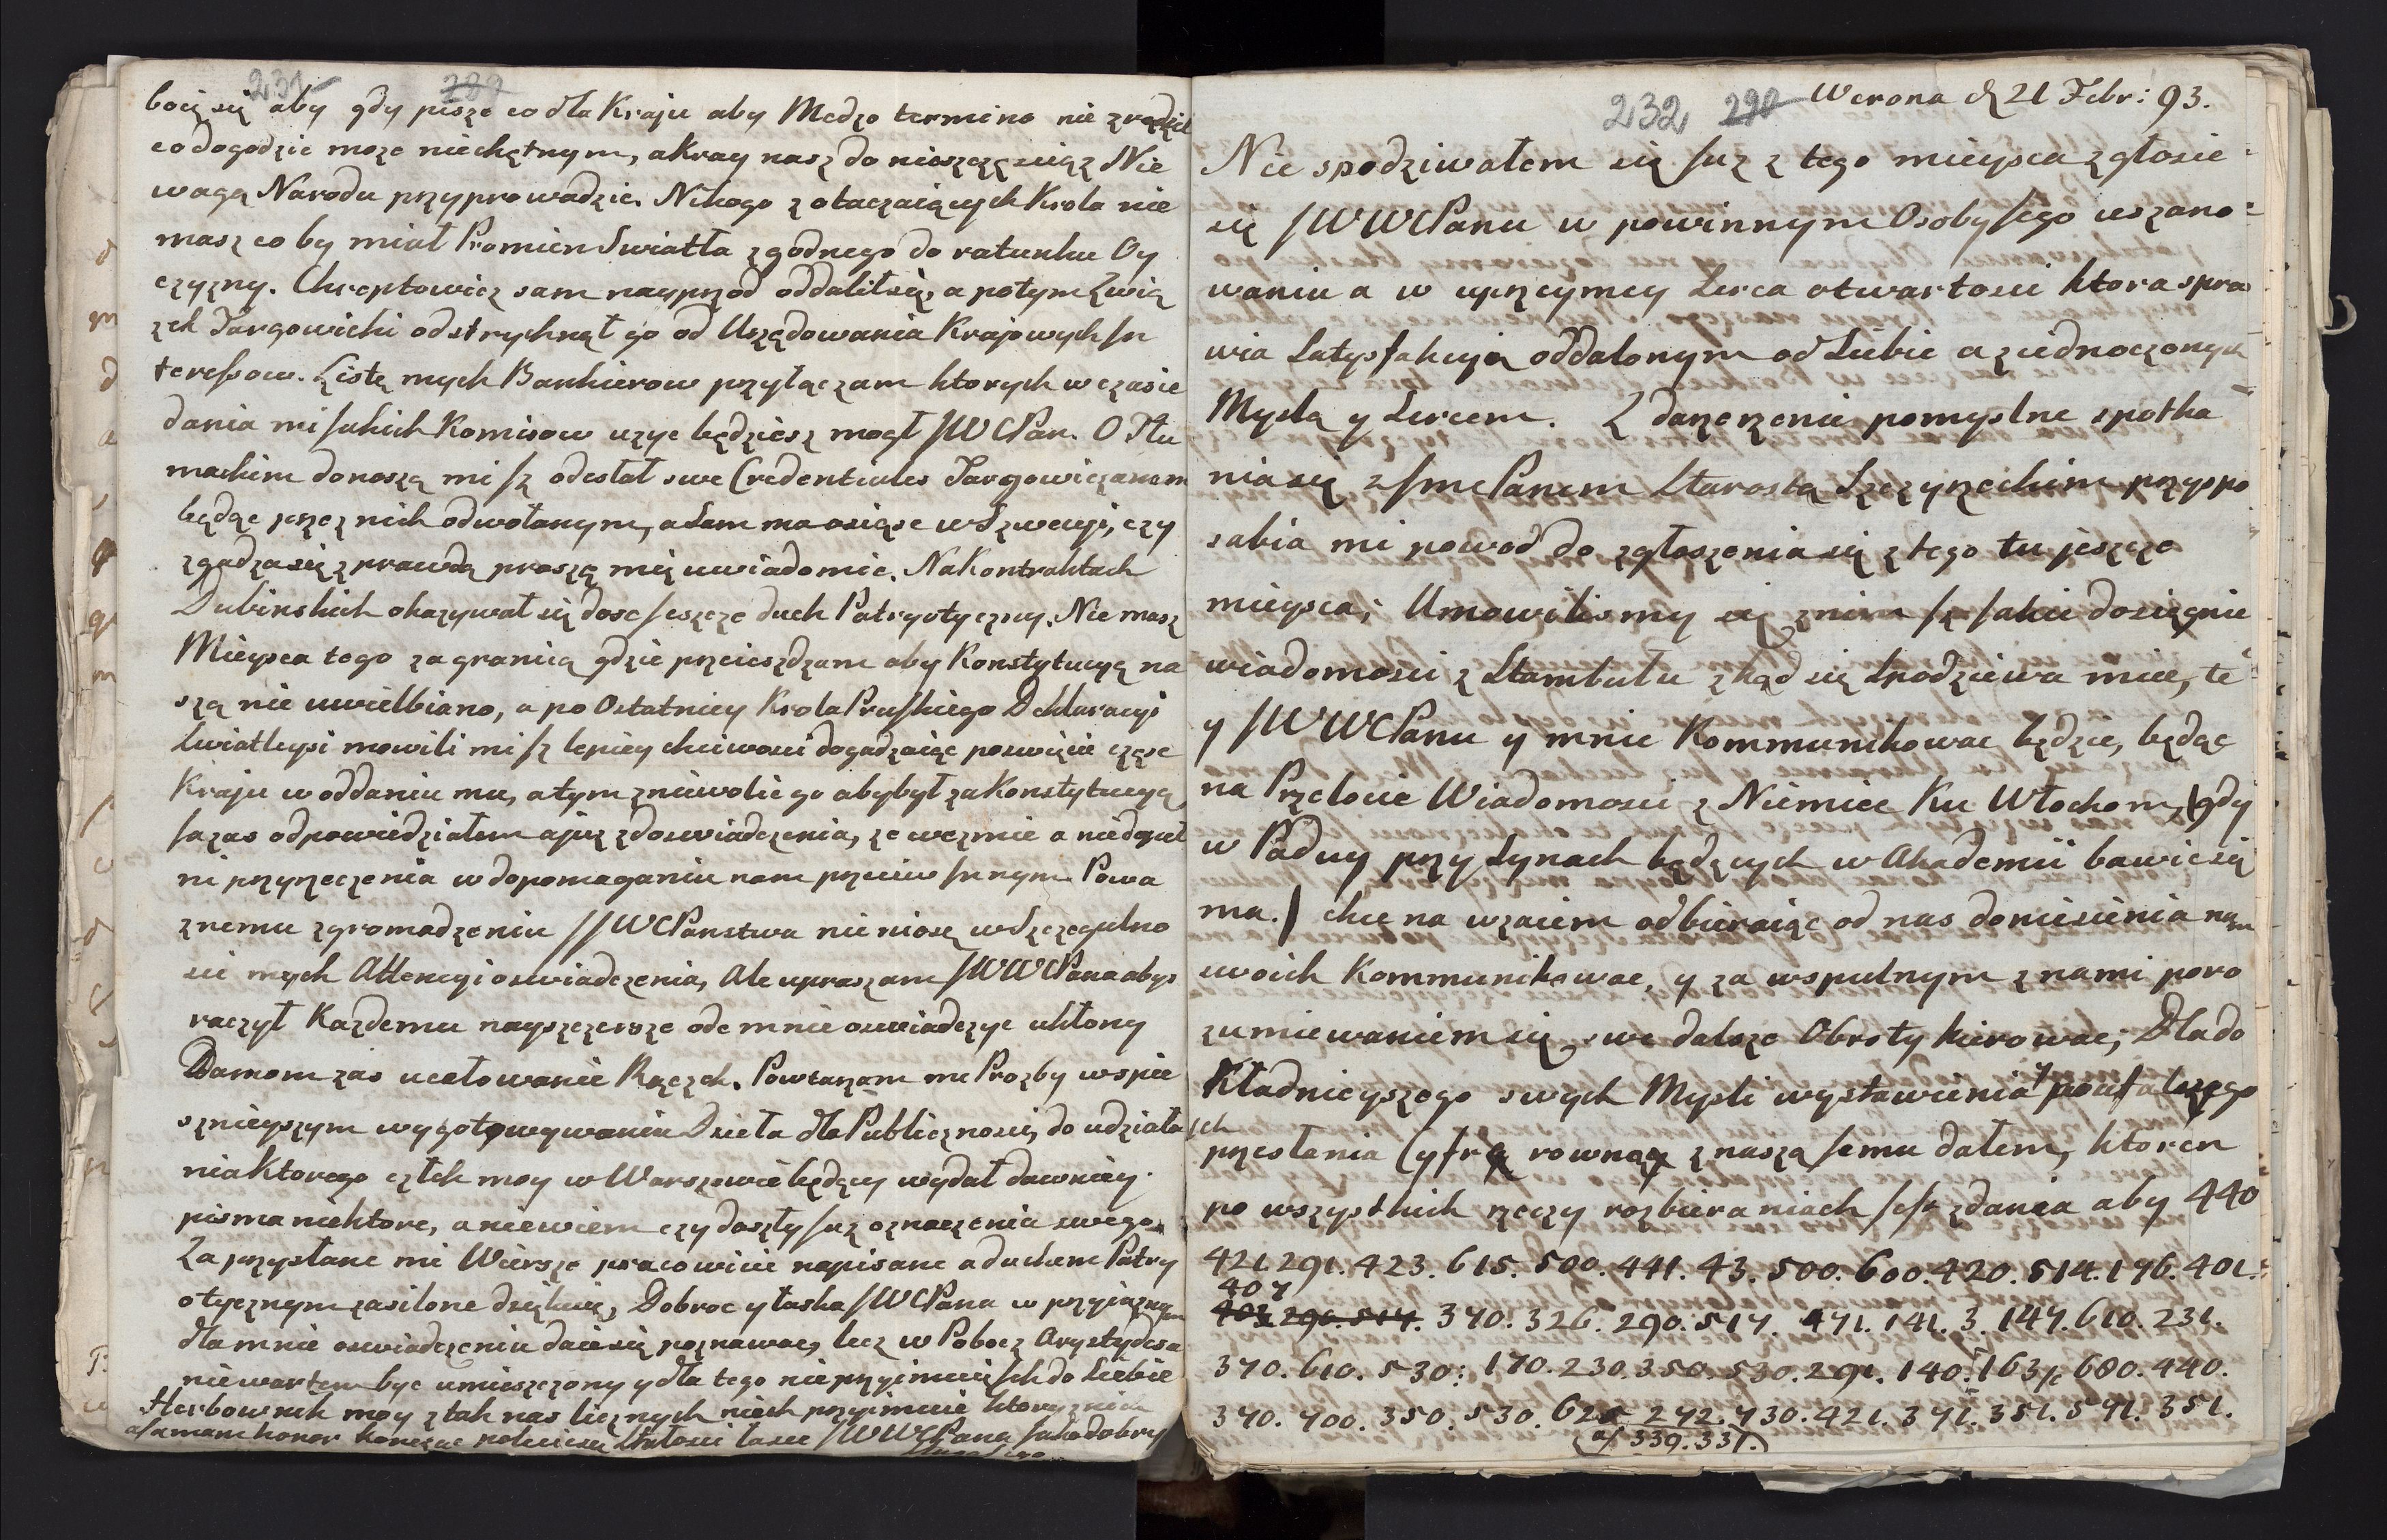 231 289
boię się aby gdy piszę co dla Kraju aby Medzo termino nie zrządził
co dogodzic moze niechętnym, a kray nasz do nieszczęscia z Nie
wagą Narodu przyprowadzic. Nikogo z otaczaiących Krola nie
masz co by miał Promien Swiatła zgodnego do ratunku Oy
czyzny. Chreptowicz sam nayprzod oddalił się, a potym Zwią
zek Targowicki odstrychnął go od Urzędowania Krajowych In
teressow. Listę mych Bankierow przyłączam ktorych w czasie
dania mi Jakich Komisow uzyc będziesz mogł JWWPan. O Tłu
mackim donoszą mi Jz odesłał swe Credentiales Targowiczanom
będąc przez nich odwołanym, a Sam ma osiąsc w Szwecyi, czy
zgadza się z prawdą proszę mię uwiadomic. Na Kontraktach
Dubinskich okazywał się dosc Jeszcze duch Patryotyczny. Nie masz
Mieysca tego za granicą gdzie przeieszdzam aby Konstytucyą na
szą nie uwielbiano, a po Ostatniey Krola Pruskiego Deklaracyi
Swiatleysi mowili mi Jz lepiey chciwosci dogadzaiąc poswięcic częsc
Kraju w oddaniu mu, a tym zniewolic go aby był za Konstytucyą
Ja zas odpowiedziałem a juz z doswiadczenia, ze wezmie a niedopeł
ni przyrzeczenia w dopomaganiu nam przeciw Jnnym. Powa
znemu zgromadzeniu JJWWPanstwa nie niosę w Szczegulno
sci mych Attencyi oswiadczenia, Ale upraszam JWWPana abys
raczył Kazdemu nayszczersze odemnie oswiadczyc ukłony
Damom zas ucałowanie Rączek. Powtarzam me Prozby w spie
sznieyszym wygotowywaniu Dzieła dla Publicznosci, do udziała
nia ktorego człek moy w Warszawie będący wydał dawniey
pisma niektore, a niewiem czy doszły Juz oznaczenia swego.
Za przysłane mi Wiersze pracowicie napisane a duchem Patry
otycznym zasilone dziękuię, Dobroc y łaska JWWPana w przyiaznym
dla mnie oswiadczeniu daie się poznawac, lecz w Pobocz Arystydesa
niewartem byc umieszczony y dla tego nie przyimuię Jch do Siebie
Herbownik moy z tak nas licznych niech przyimuie ktory z nich
a Ja mam honor konczac poleciciel Stałosci łasce JWWPana Jako dobry
232 290 Werona d. 21 Febr: 93.
Nie spodziwałem się Juz z tego mieysca zgłosic
się JWWPanu w powinnym Osoby Jego uszano=
waniu a w uprzeymey Serca otwartosci ktora spra
wia Satysfakcyą oddalonym od Siebie a ziednoczonym
Myslą y Sercem. Zdarzenie pomyslne spotka
nia się z JmcPanem Starostą Szczyrzeckim przyspo
sabia mi powod do zgłoszenia się z tego tu jeszcze
mieysca; Umowilismy się z nim Jz Jakie dosięgnie
wiadomosci z Stambułu zkąd się Spodziewa miec, te
y JWWPanu y mnie Kommunikowac będzie, będąc
na Przelocie Wiadomosci z Niemiec Ku Włochom, (gdy
w Paduy przy Synach będących w Akademii bawic się
ma.) chce na wzaiem odbieraiąc od nas doniesienia nam
swoich Kommunikowac, y za wspulnym z nami poro
zumiewaniem się swe dalsze Obroty kierowac; Dla do
Kładnieyszego swych Mysli wystawienia y poufalszego
Jch
przesłania Cyfrę rowną z naszą Jemu dałem, ktoren
po wszystkich rzeczy rozbieraniach Jest zdania aby 440
421. 291. 423. 615. 500. 441. 43. 500. 600. 420. 514. 196. 401.
407
403. 290. 514. 340. 326. 290. 514. 471. 141. 3. 147. 610. 231.
370. 610. 530: 170. 230. 350. 530. 291. 140. 163. 680. 440.
340. 400. 350. 530. 620 242. 430. 421. 341. 351. 591. 351.
a/ 339. 331.